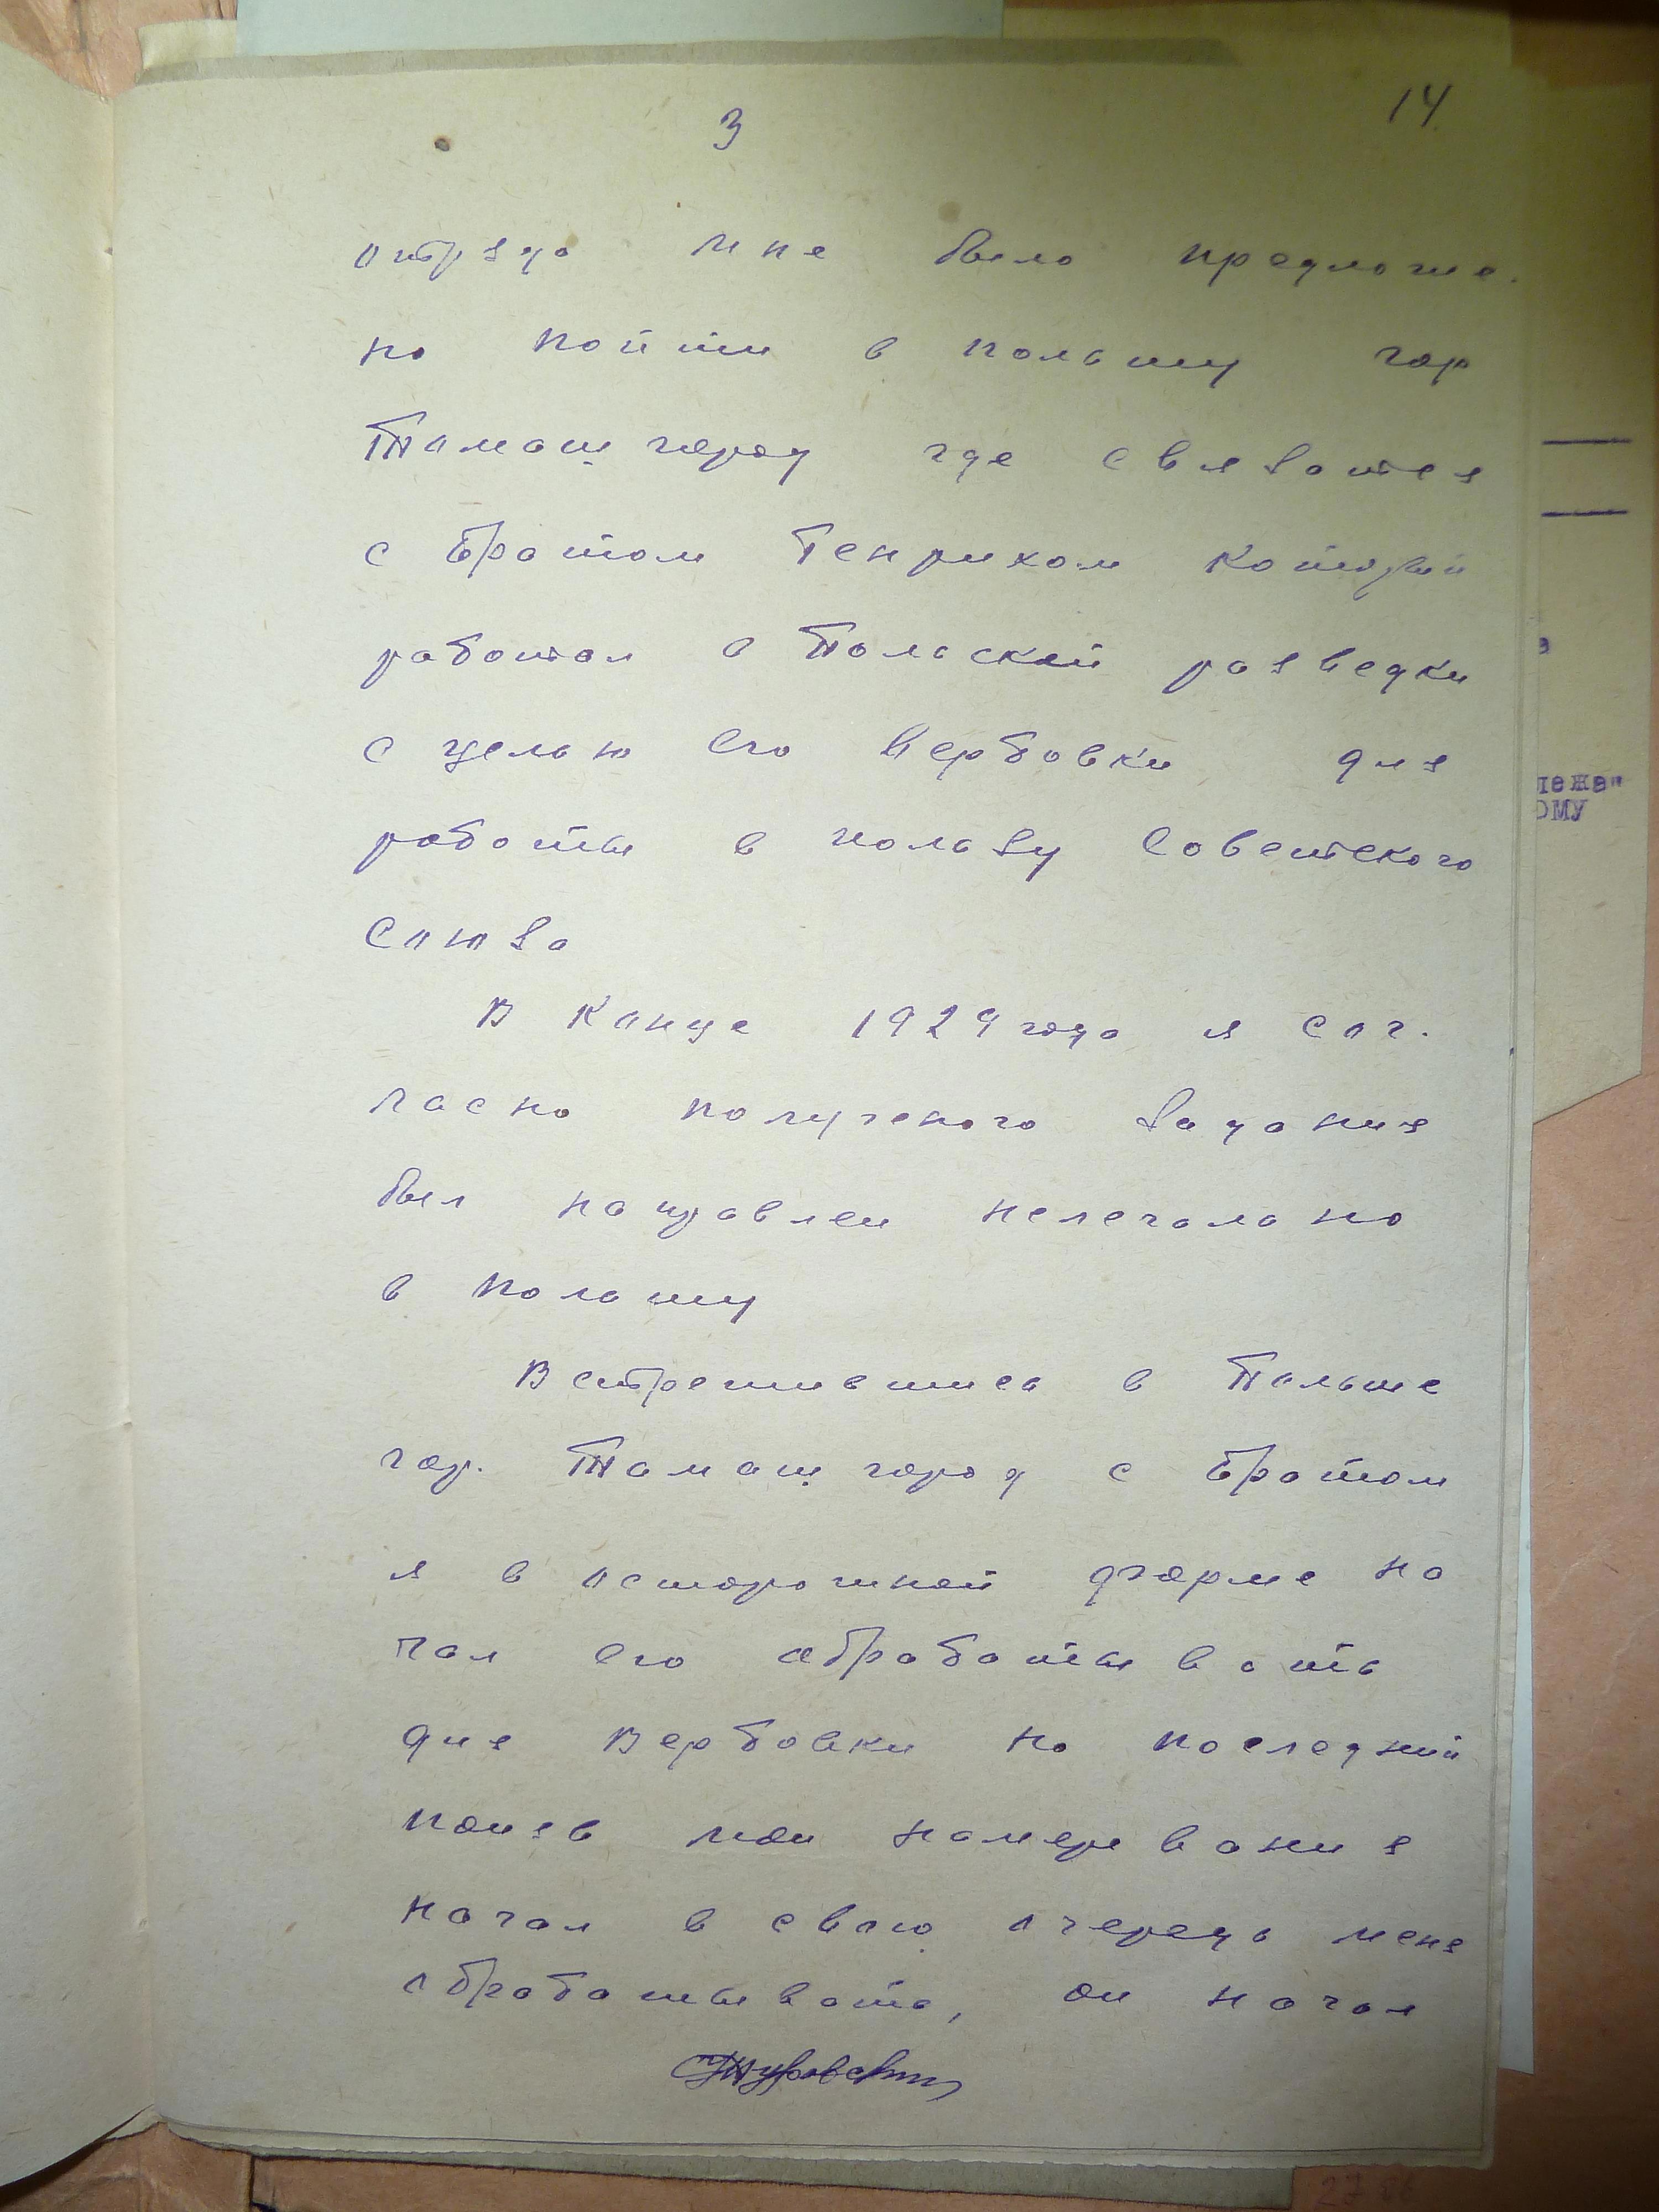 3
14
отряда мне было предложе-
но пойти в польшу гор
Томашгород где связатся
с братом Генрихом который
работал в Польской разведки
с целью его вербовки для
работы в пользу Советского
Союза
В конце 1929 года я сог-
ласно полученого задания
был направлен нелегально
в польшу
Встретившись в Польше
гор. Томашгород с братом
я в осторожной форме на
чал его обрабатывать
для вербовки но последний
поняв мои намеревания
начал в свою очередь меня
обрабатывать, он начал
лежа"
ОМУ